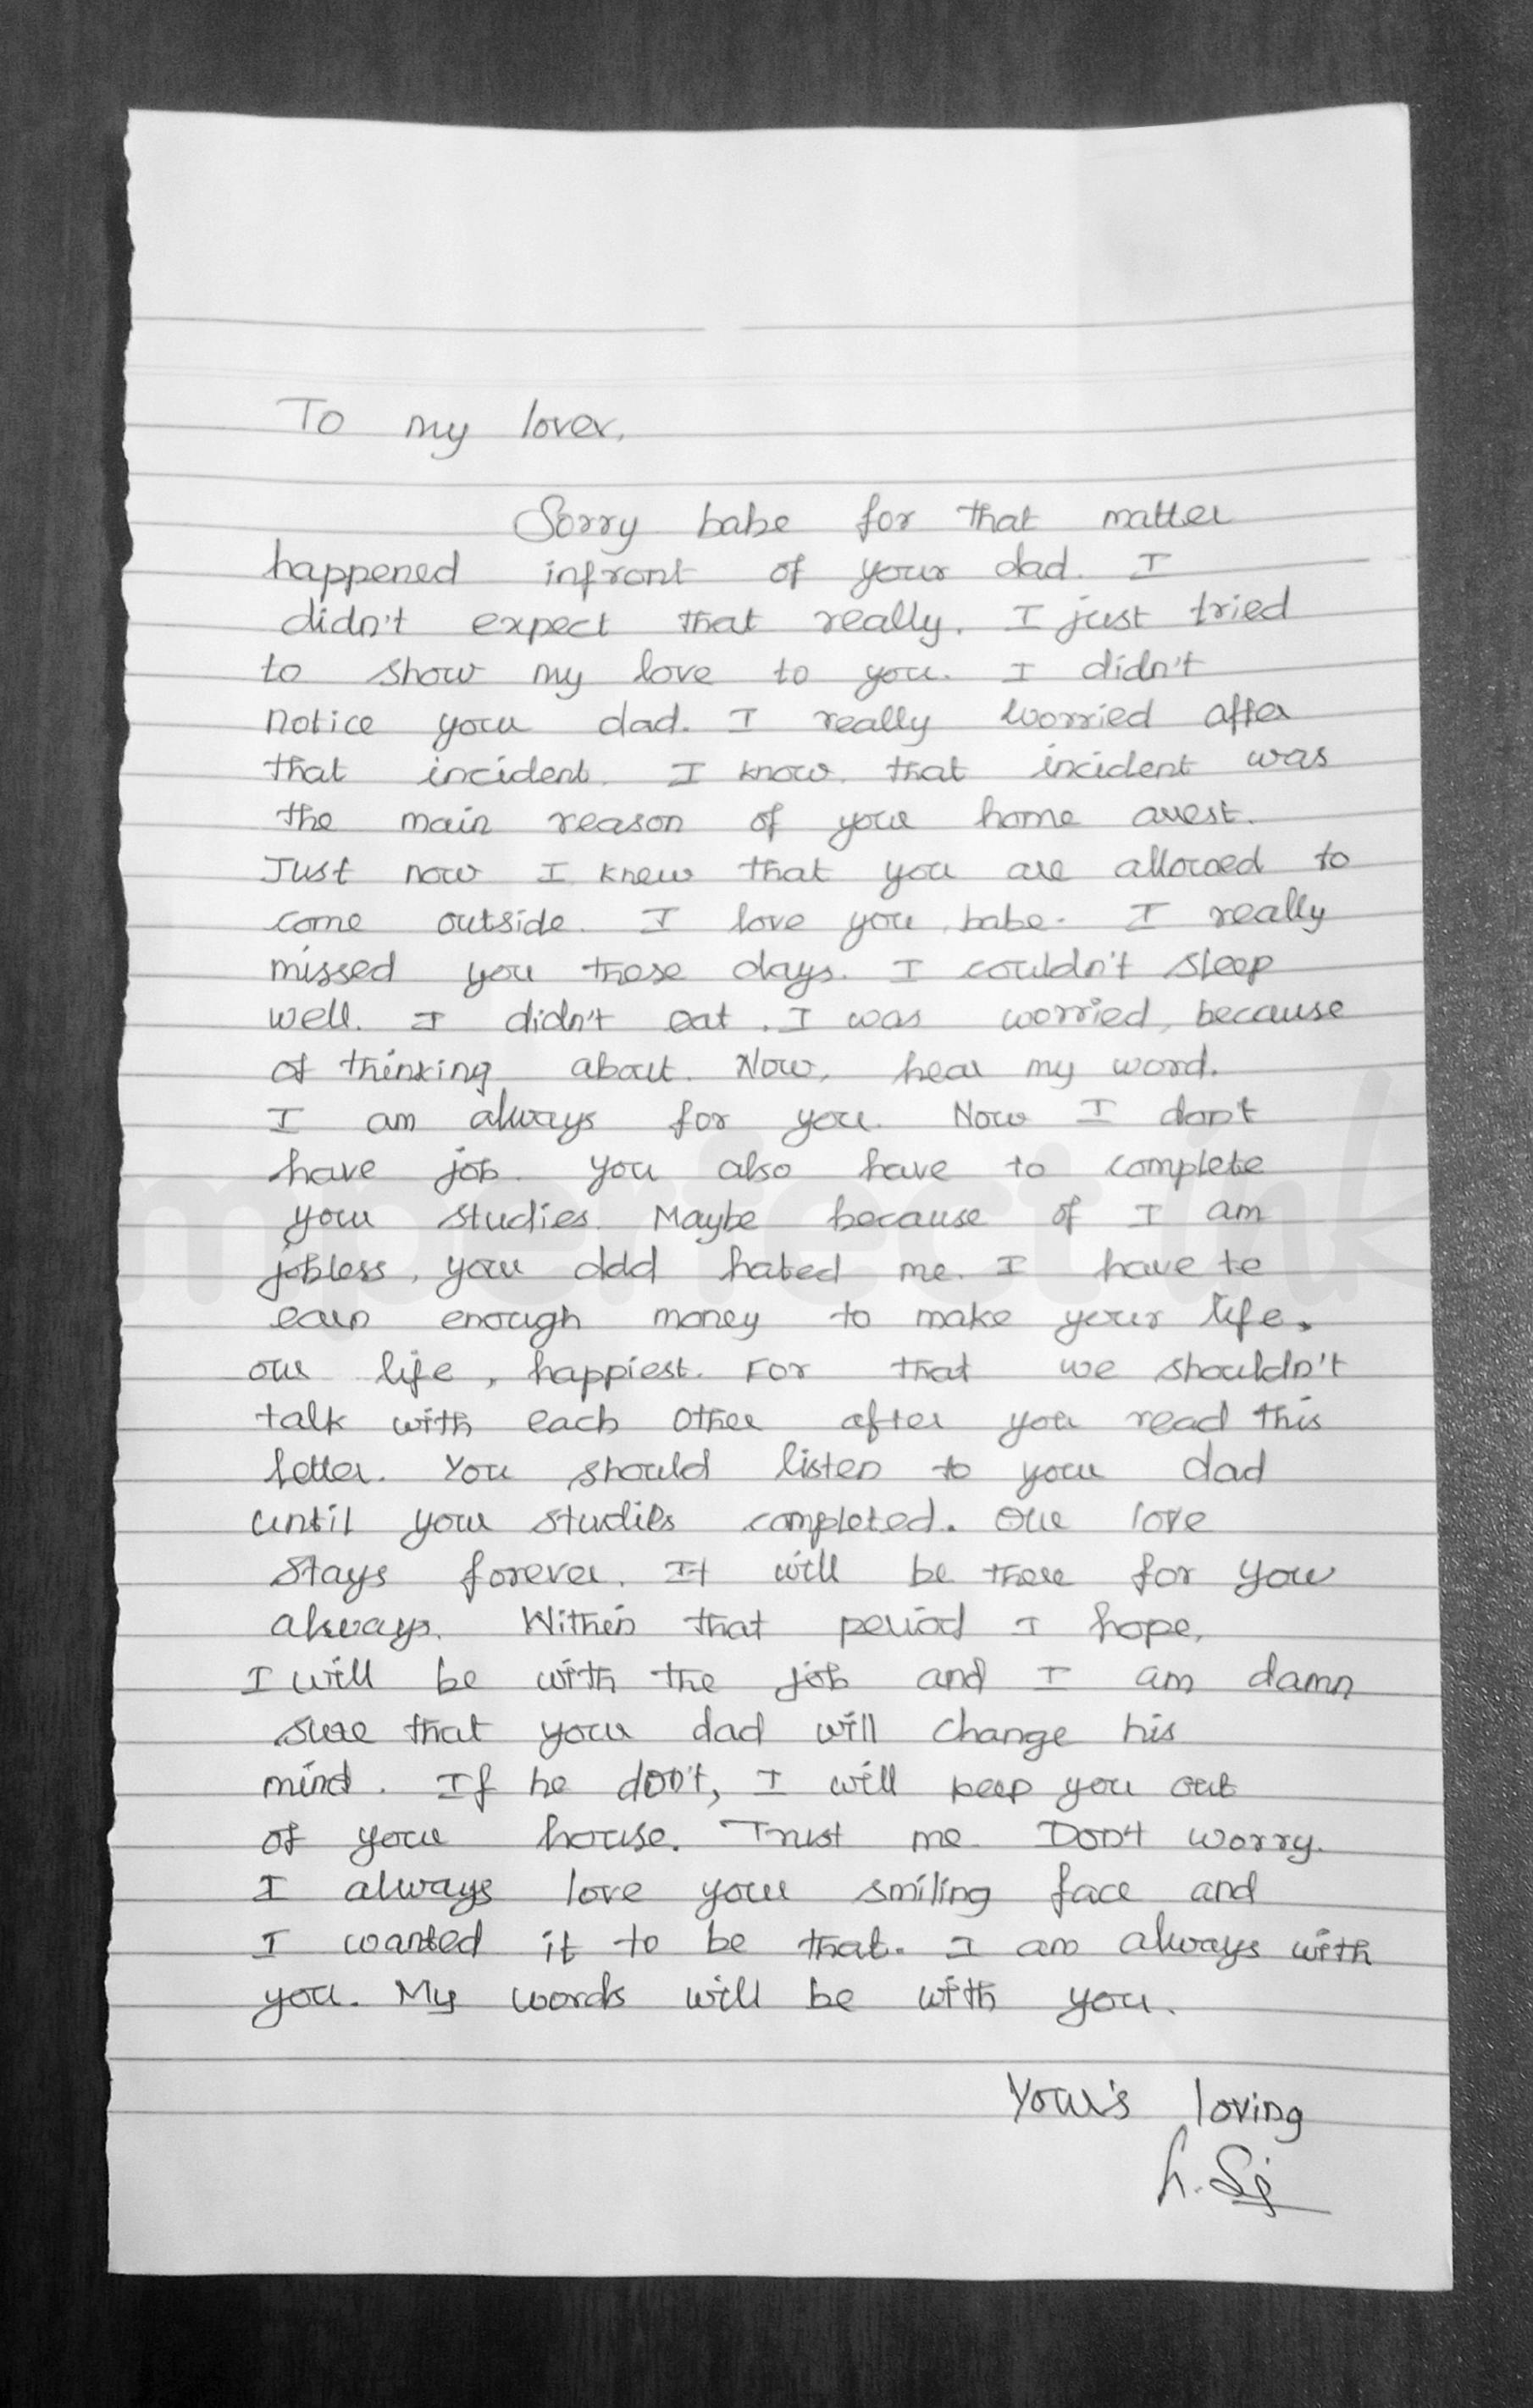 To my lover,
Sorry babe for that matter
happened infront of your dad. I
didn't expect that really. I just tried
to show my love to you. I didn't
notice your dad. I really worried after
that incident. I know that incident was
the main reason of your home arrest.
Just now I knew that you are allowed to
come outside. I love you babe. I really
missed you those days. I couldn't sleep
well. I didn't eat. I was worried, because
of thinking about. Now, hear my word.
I am always for you. Now I don't
have job. You also have to complete
your studies. Maybe because of I am
jobless, your dad hated me. I have to
earn enough money to make your life,
our life, happiest. For that we shouldn't
talk with each other after you read this
letter. You should listen to your dad
until your studies completed. Our love
stays forever. It will be there for you
always. Within that period I hope,
I will be with the job and I am damn
sure that your dad will change his
mind. If he don't, I will keep you out
of your house. Trust me. Don't worry.
I always love your smiling face and
I wanted it to be that. I am always with
you. My words will be with you.
Your's loving
mperfect ink